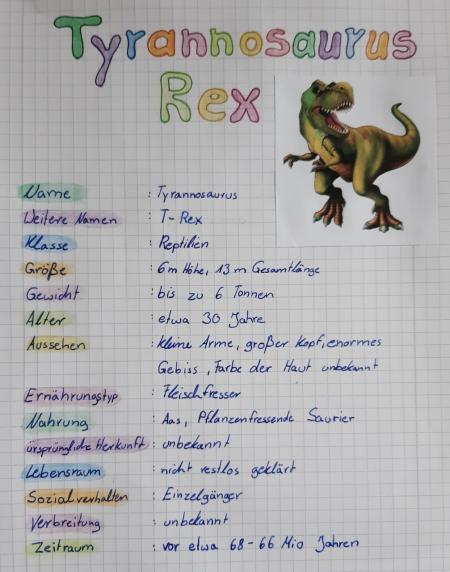 Tyrannosaurus
Rex
Name : Tyrannosaurus
Weitere Namen : T-Rex
Klasse : Reptilien
Größe : 6m Höhe, 13m Gesamtlänge
Gewicht : bis zu 6 Tonnen
Alter : etwa 30 Jahre
Aussehen : kleine Arme, großer Kopf, enormes
Gebiss, Farbe der Haut unbekannt
Ernährungstyp : Fleischfresser
Nahrung : Aas, Pflanzenfressende Saurier
ursprüngliche Herkunft : unbekannt
Lebensraum : nicht restlos geklärt
Sozialverhalten : Einzelgänger
Verbreitung : unbekannt
Zeitraum : vor etwa 68-66 Mio Jahren